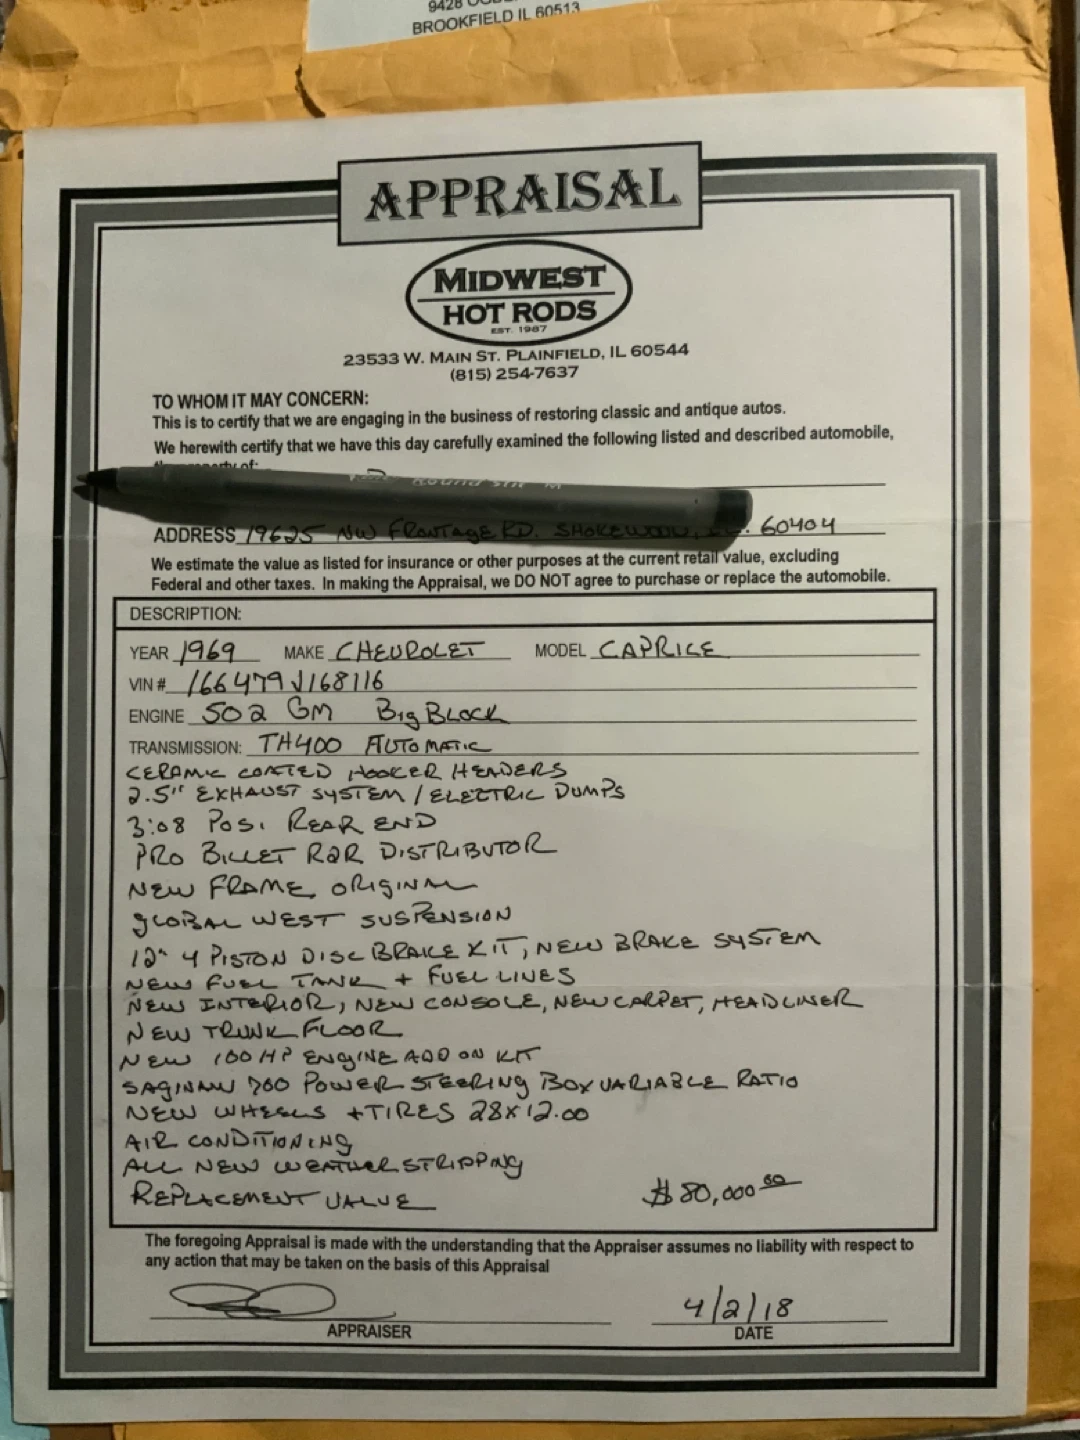 9428
BROOKFIELD IL 60513
APPRAISAL
MIDWEST
HOT RODS
EST. 1987
23533 W. MAIN ST. PLAINFIELD, IL 60544
(815) 254-7637
TO WHOM IT MAY CONCERN:
This is to certify that we are engaging in the business of restoring classic and antique autos.
We herewith certify that we have this day carefully examined the following listed and described automobile,
of:
ADDRESS 19625 NW FRONTAGE RD. SHOREWOOD, 60404
We estimate the value as listed for insurance or other purposes at the current retail value, excluding
Federal and other taxes. In making the Appraisal, we DO NOT agree to purchase or replace the automobile.
DESCRIPTION:
YEAR 1969 MAKE CHEVROLET MODEL CAPRICE
VIN # 166479J168116
ENGINE 502 GM Big BLOCK
TRANSMISSION: TH400 AUTOMATIC
CERAMIC COATED HOOKER HEADERS
2.5" EXHAUST SYSTEM / ELECTRIC DUMPS
3:08 POSI REAR END
PRO BILLET R2R DISTRIBUTOR
NEW FRAME ORIGINAL
GLOBAL WEST SUSPENSION
12" 4 PISTON DISC BRAKE KIT, NEW BRAKE SYSTEM
NEW FUEL TANK + FUEL LINES
NEW INTERIOR, NEW CONSOLE, NEW CARPET, HEADLINER
NEW TRUNK FLOOR
NEW 100 HP ENGINE ADD ON KIT
SAGINAW 700 POWER STEERING BOX VARIABLE RATIO
NEW WHEELS + TIRES 28X12.00
AIR CONDITIONING
ALL NEW WEATHER STRIPPING
REPLACEMENT VALUE $80,000 00
The foregoing Appraisal is made with the understanding that the Appraiser assumes no liability with respect to
any action that may be taken on the basis of this Appraisal
4/2/18
APPRAISER DATE